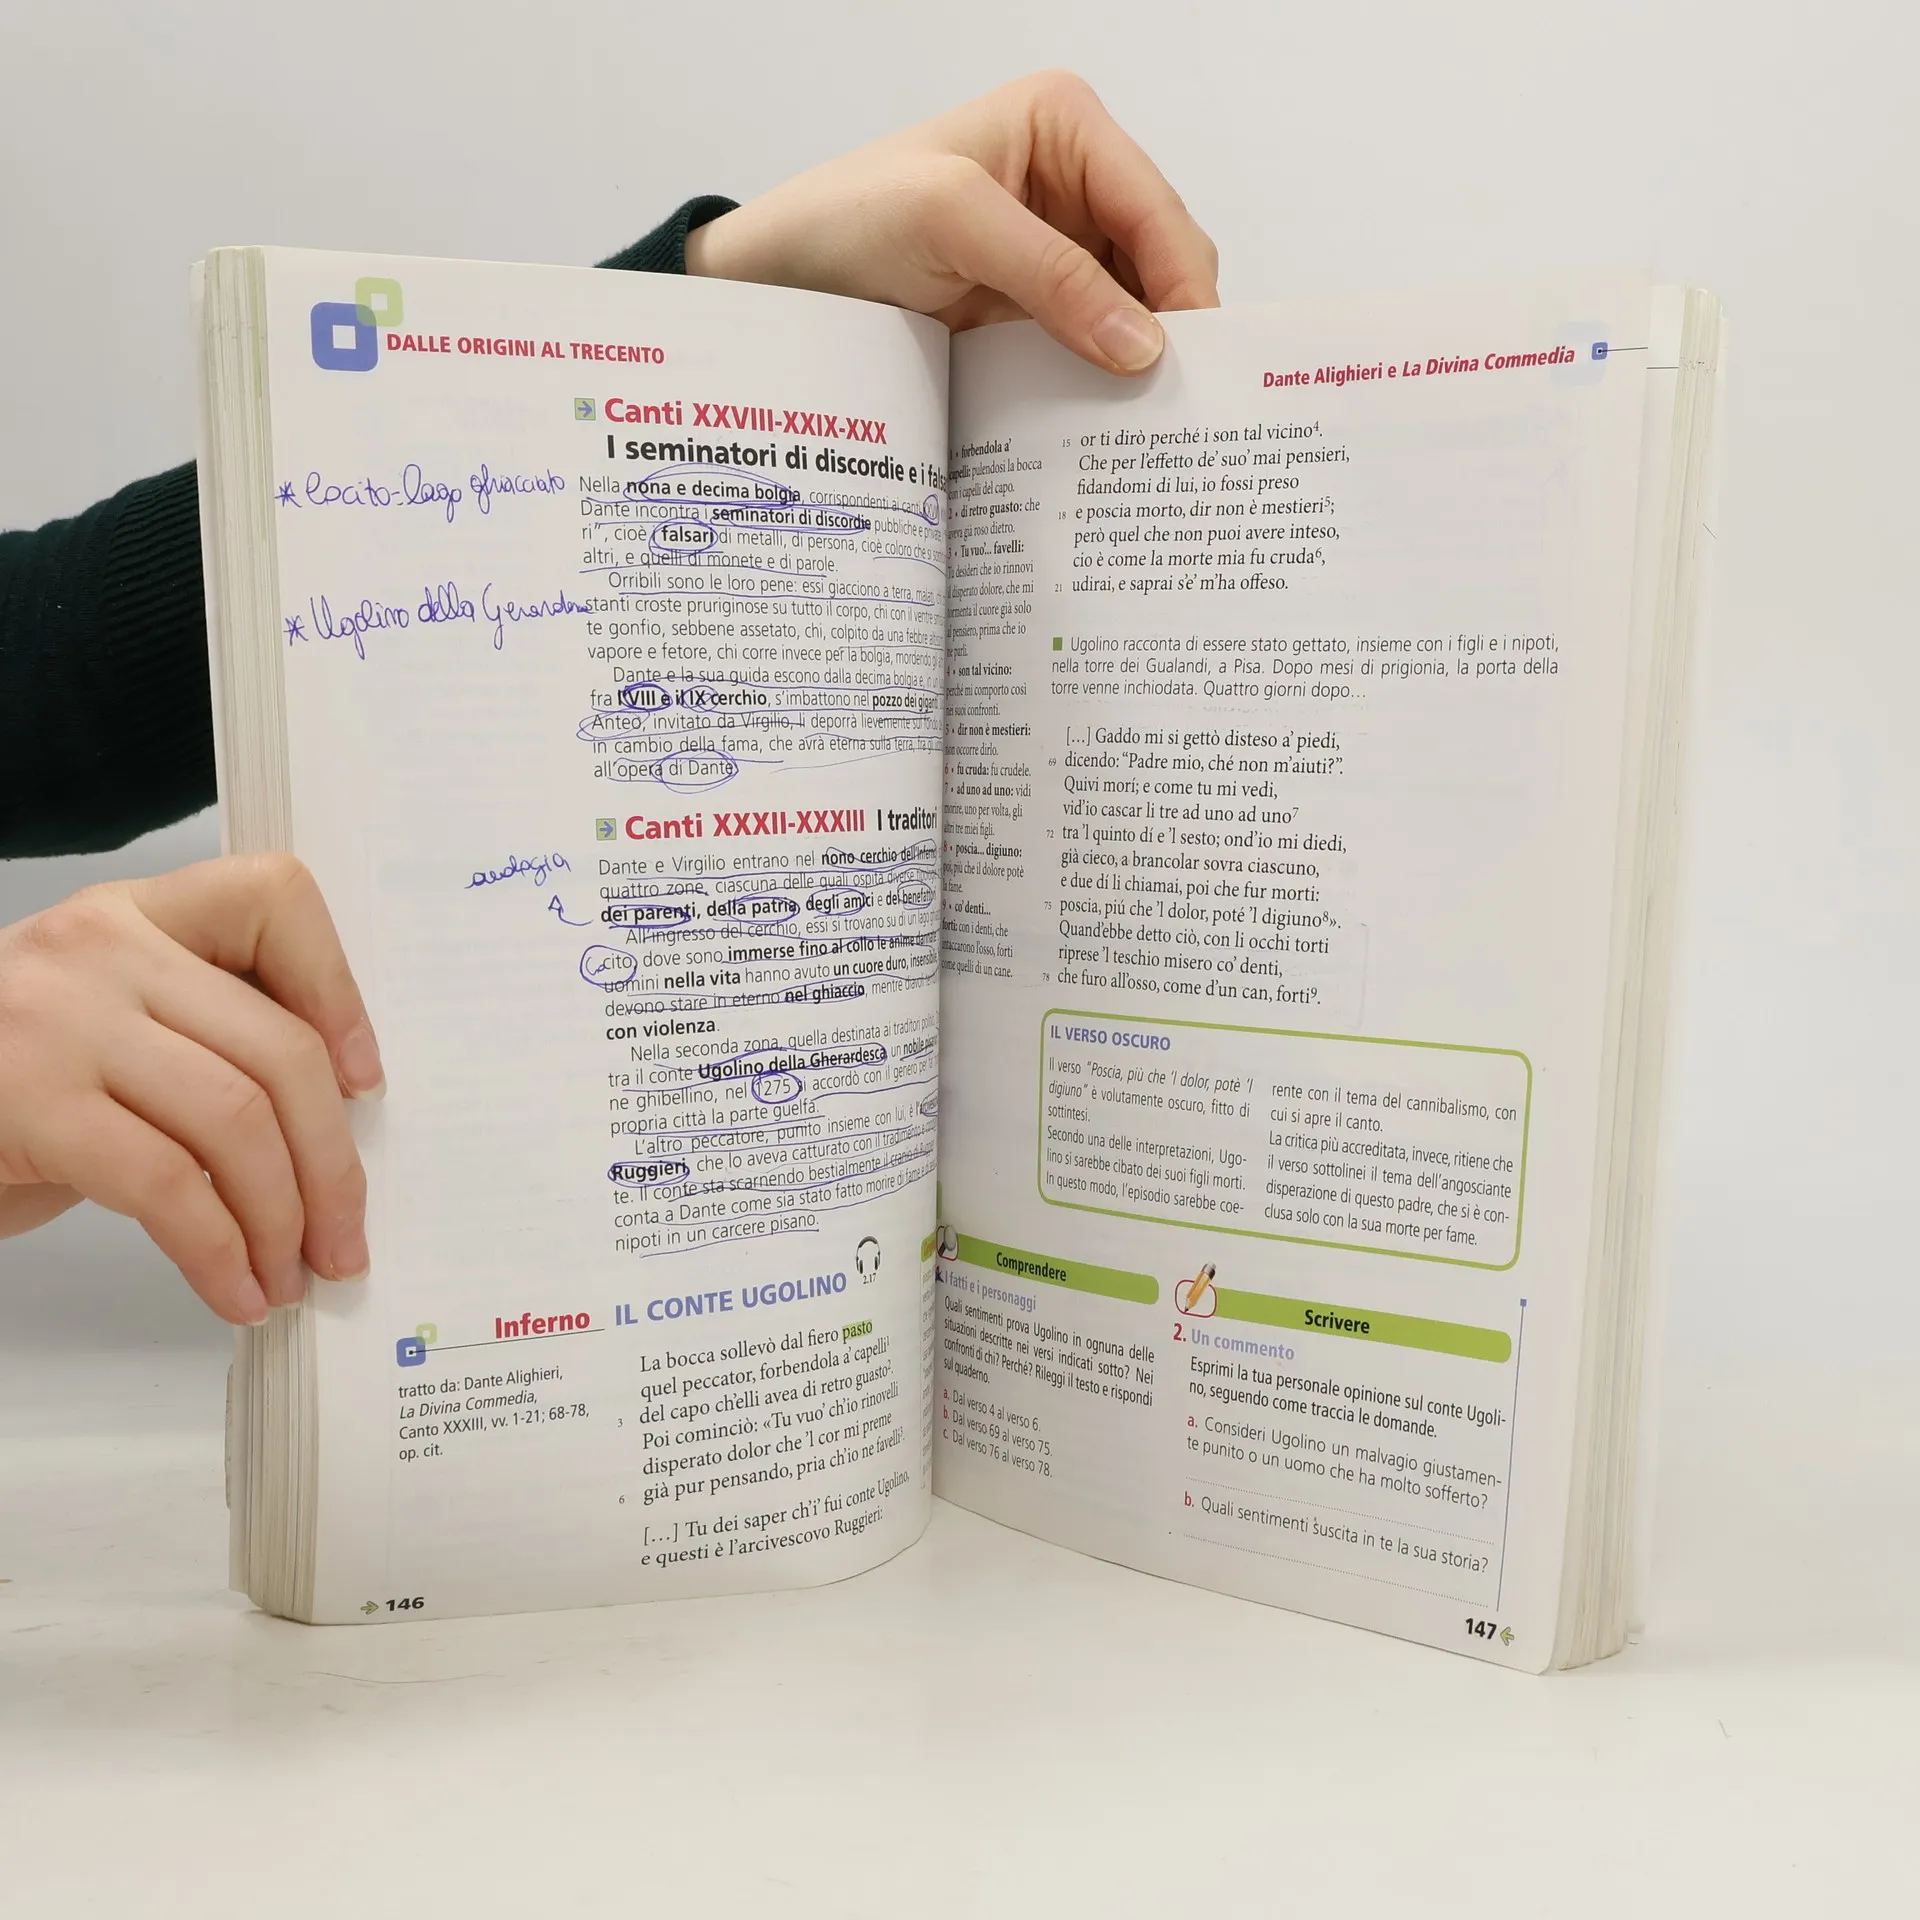 DALLE ORIGINI AL TRECENTO
Canti XXVIII-XXIX-XXX
I seminatori di discordie e i
* Cocito=lago ghiacciato
* Ugolino della
Nella nona e decima bolgia, corrispondenti ai canti
Dante incontra i seminatori di discordie pubbliche e
ri", cioè i falsari di metalli, di persona, cioè coloro che si
altri, e quelli di monete e di parole.
Orribili sono le loro pene: essi giacciono a terra, malati,
stanti croste pruriginose su tutto il corpo, chi con il ventre
te gonfio, sebbene assetato, chi, colpito da una febbre
vapore e fetore, chi corre invece per la bolgia, mordendo gli
Dante e la sua guida escono dalla decima bolgia e, in
fra l'VIII e il IX cerchio, s'imbattono nel pozzo dei giganti
Anteo, invitato da Virgilio, li deporrà lievemente sul fondo
in cambio della fama, che avrà eterna sulla terra, fra gli
all'opera di Dante
Canti XXXII-XXXIII I traditori
Dante e Virgilio entrano nel nono cerchio dell'Inferno
quattro zone, ciascuna delle quali ospita diverse
dei parenti, della patria, degli amici e dei
All'ingresso del cerchio, essi si trovano su di un lago
Cocito, dove sono immerse fino al collo le anime dannate
uomini nella vita hanno avuto un cuore duro, insensibile
devono stare in eterno nel ghiaccio, mentre
con violenza.
Nella seconda zona, quella destinata ai traditori
tra il conte Ugolino della Gherardesca un nobile
ne ghibellino, nel 1275 si accordò con il genero per
propria città la parte guelfa.
L'altro peccatore, punito insieme con lui, è
Ruggieri, che lo aveva catturato con il tradimento e
te. Il conte sta scarnendo bestialmente il cranio di
conta a Dante come sia stato fatto morire di fame e
nipoti in un carcere pisano.
2.17
Inferno
IL CONTE UGOLINO
tratto da: Dante Alighieri,
La Divina Commedia,
Canto XXXIII, vv. 1-21; 68-78,
op. cit.
La bocca sollevò dal fiero pasto
quel peccator, forbendola a' capelli1
3 del capo ch'elli avea di retro guasto2.
Poi cominciò: «Tu vuo' ch'io rinovelli
disperato dolor che 'l cor mi preme
6 già pur pensando, pria ch'io ne favelli3.
[…] Tu dei saper ch'i' fui conte Ugolino,
e questi è l'arcivescovo Ruggieri:
146
Dante Alighieri e La Divina Commedia
forbendola a'
capelli: pulendosi la bocca
con i capelli del capo.
2 • di retro guasto: che
aveva già roso dietro.
3 • Tu vuo'... favelli:
Tu desideri che io rinnovi
il disperato dolore, che mi
tormenta il cuore già solo
al pensiero, prima che io
ne parli.
4 • son tal vicino:
perché mi comporto così
nei suoi confronti.
5 • dir non è mestieri:
non occorre dirlo.
6 • fu cruda: fu crudele.
7 • ad uno ad uno: vidi
morire, uno per volta, gli
altri tre miei figli.
8 • poscia... digiuno:
poi, più che il dolore potè
la fame.
9 • co' denti...
forti: con i denti, che
attaccarono l'osso, forti
come quelli di un cane.
15 or ti dirò perché i son tal vicino4.
Che per l'effetto de' suo' mai pensieri,
fidandomi di lui, io fossi preso
18 e poscia morto, dir non è mestieri5;
però quel che non puoi avere inteso,
cio è come la morte mia fu cruda6,
21 udirai, e saprai s'e' m'ha offeso.
Ugolino racconta di essere stato gettato, insieme con i figli e i nipoti,
nella torre dei Gualandi, a Pisa. Dopo mesi di prigionia, la porta della
torre venne inchiodata. Quattro giorni dopo…
[…] Gaddo mi si gettò disteso a' piedi,
69 dicendo: "Padre mio, ché non m'aiuti?".
Quivi morí; e come tu mi vedi,
vid'io cascar li tre ad uno ad uno7
72 tra 'l quinto dí e 'l sesto; ond'io mi diedi,
già cieco, a brancolar sovra ciascuno,
e due dí li chiamai, poi che fur morti:
75 poscia, piú che 'l dolor, poté 'l digiuno8».
Quand'ebbe detto ciò, con li occhi torti
riprese 'l teschio misero co' denti,
78 che furo all'osso, come d'un can, forti9.
IL VERSO OSCURO
Il verso "Poscia, più che 'l dolor, potè 'l
digiuno" è volutamente oscuro, fitto di
sottintesi.
Secondo una delle interpretazioni, Ugo-
lino si sarebbe cibato dei suoi figli morti.
In questo modo, l'episodio sarebbe coe-
rente con il tema del cannibalismo, con
cui si apre il canto.
La critica più accreditata, invece, ritiene che
il verso sottolinei il tema dell'angosciante
disperazione di questo padre, che si è con-
clusa solo con la sua morte per fame.
Comprendere
I fatti e i personaggi
Quali sentimenti prova Ugolino in ognuna delle
situazioni descritte nei versi indicati sotto? Nei
confronti di chi? Perché? Rileggi il testo e rispondi
sul quaderno.
a. Dal verso 4 al verso 6.
b. Dal verso 69 al verso 75.
c. Dal verso 76 al verso 78.
Scrivere
2. Un commento
Esprimi la tua personale opinione sul conte Ugoli-
no, seguendo come traccia le domande.
a. Consideri Ugolino un malvagio giustamen-
te punito o un uomo che ha molto sofferto?
b. Quali sentimenti suscita in te la sua storia?
147